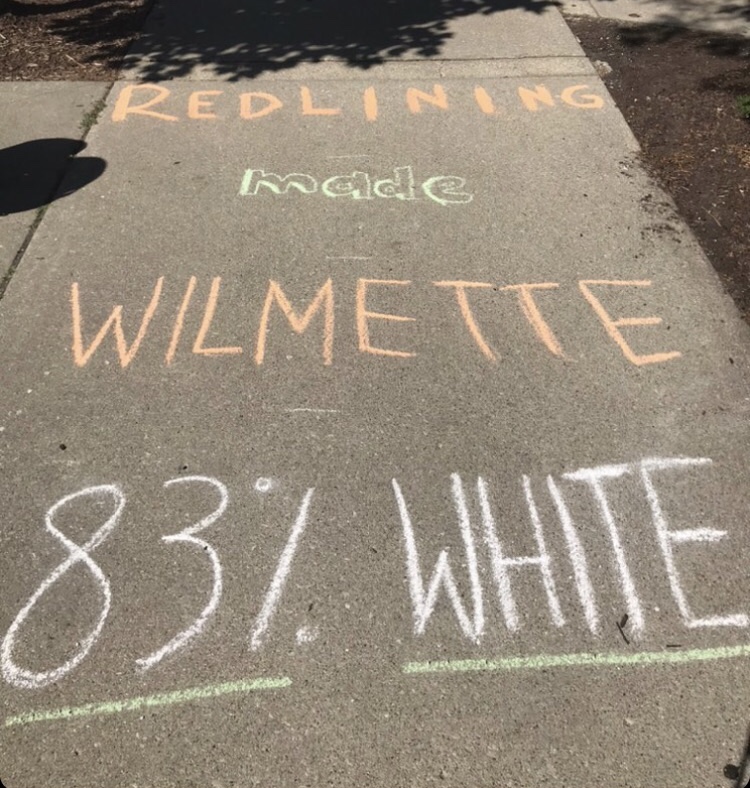 REDLINING
made
WILMETTE
83% WHITE